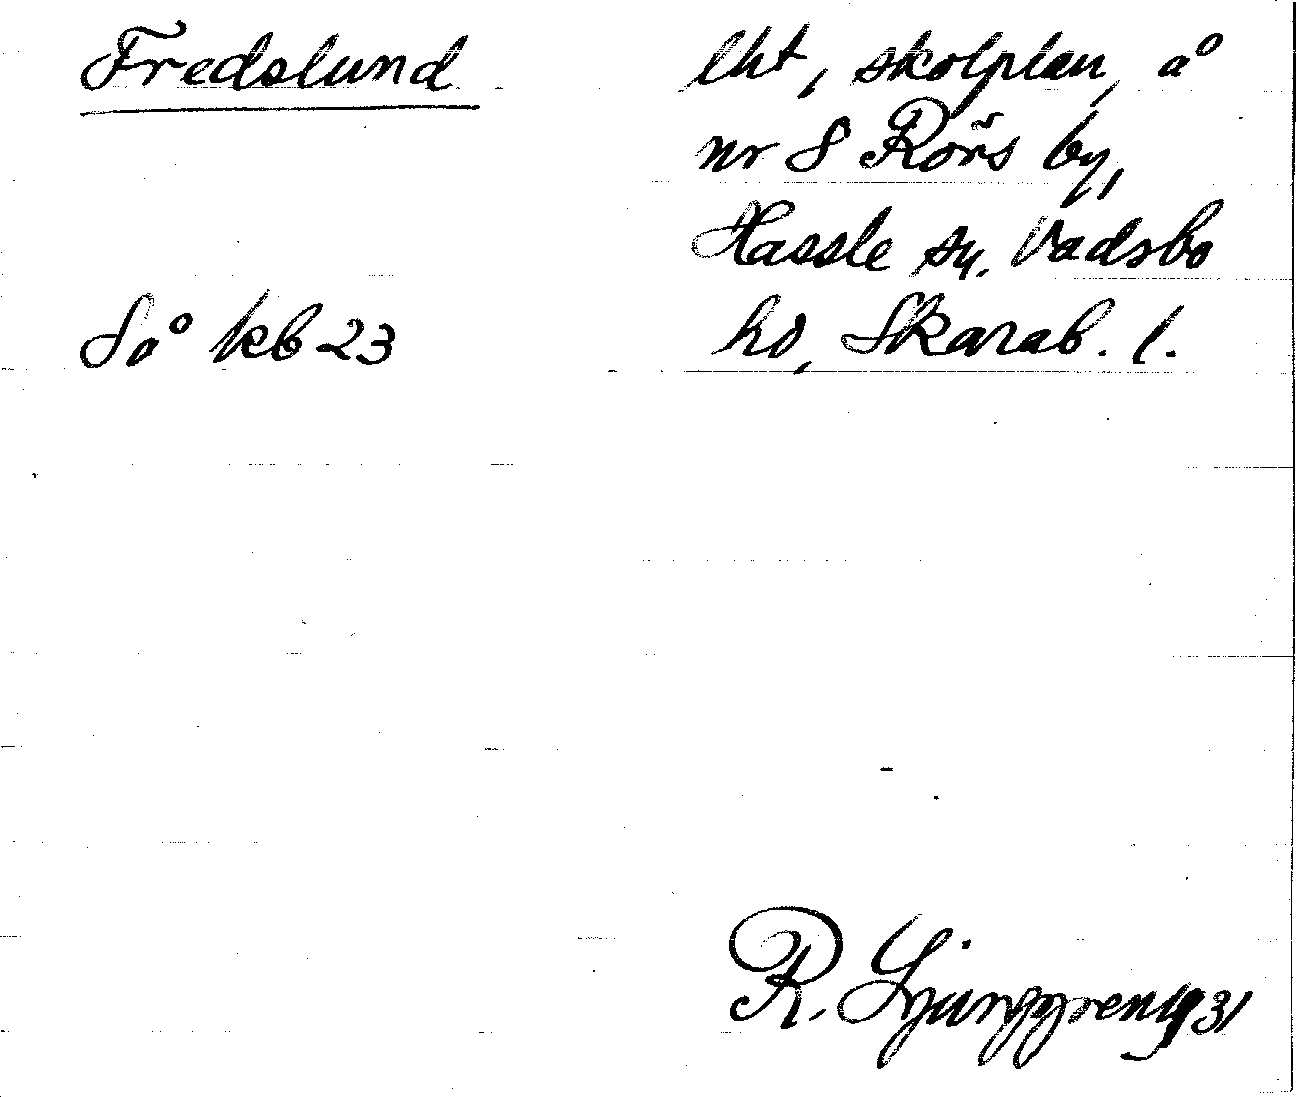 Fredslund
So° kb 23
lht, skolplan, a°
nr 8 Rörs by,
Hassle sn. Vadsbo
hd, Skarab. l.
R. Ljunggren 1931